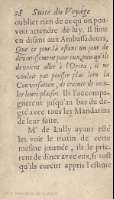 28 Suite du Voyage
oublier rien de ce qu'on pou-
voit attendre de luy. Il finit
en disant aux Ambassadeurs,
Que ce jour-là estant un jour de
divertissement pour eux, &
devoient aller à l'Opera, il ne
vouloit pas pousser plus loin la
Conversation, de crainte de
leurs plaisirs. Ils l'accompa-
gnerent jusqu'au bas du de-
gré avec tous les Mandarins
de leur suite.
Mr de Lully ayant esté
les voir le matin de cette
mesme journée, ils le pri-
rent de disner avec eux, & tost
qu'ils eurent appris l'estime